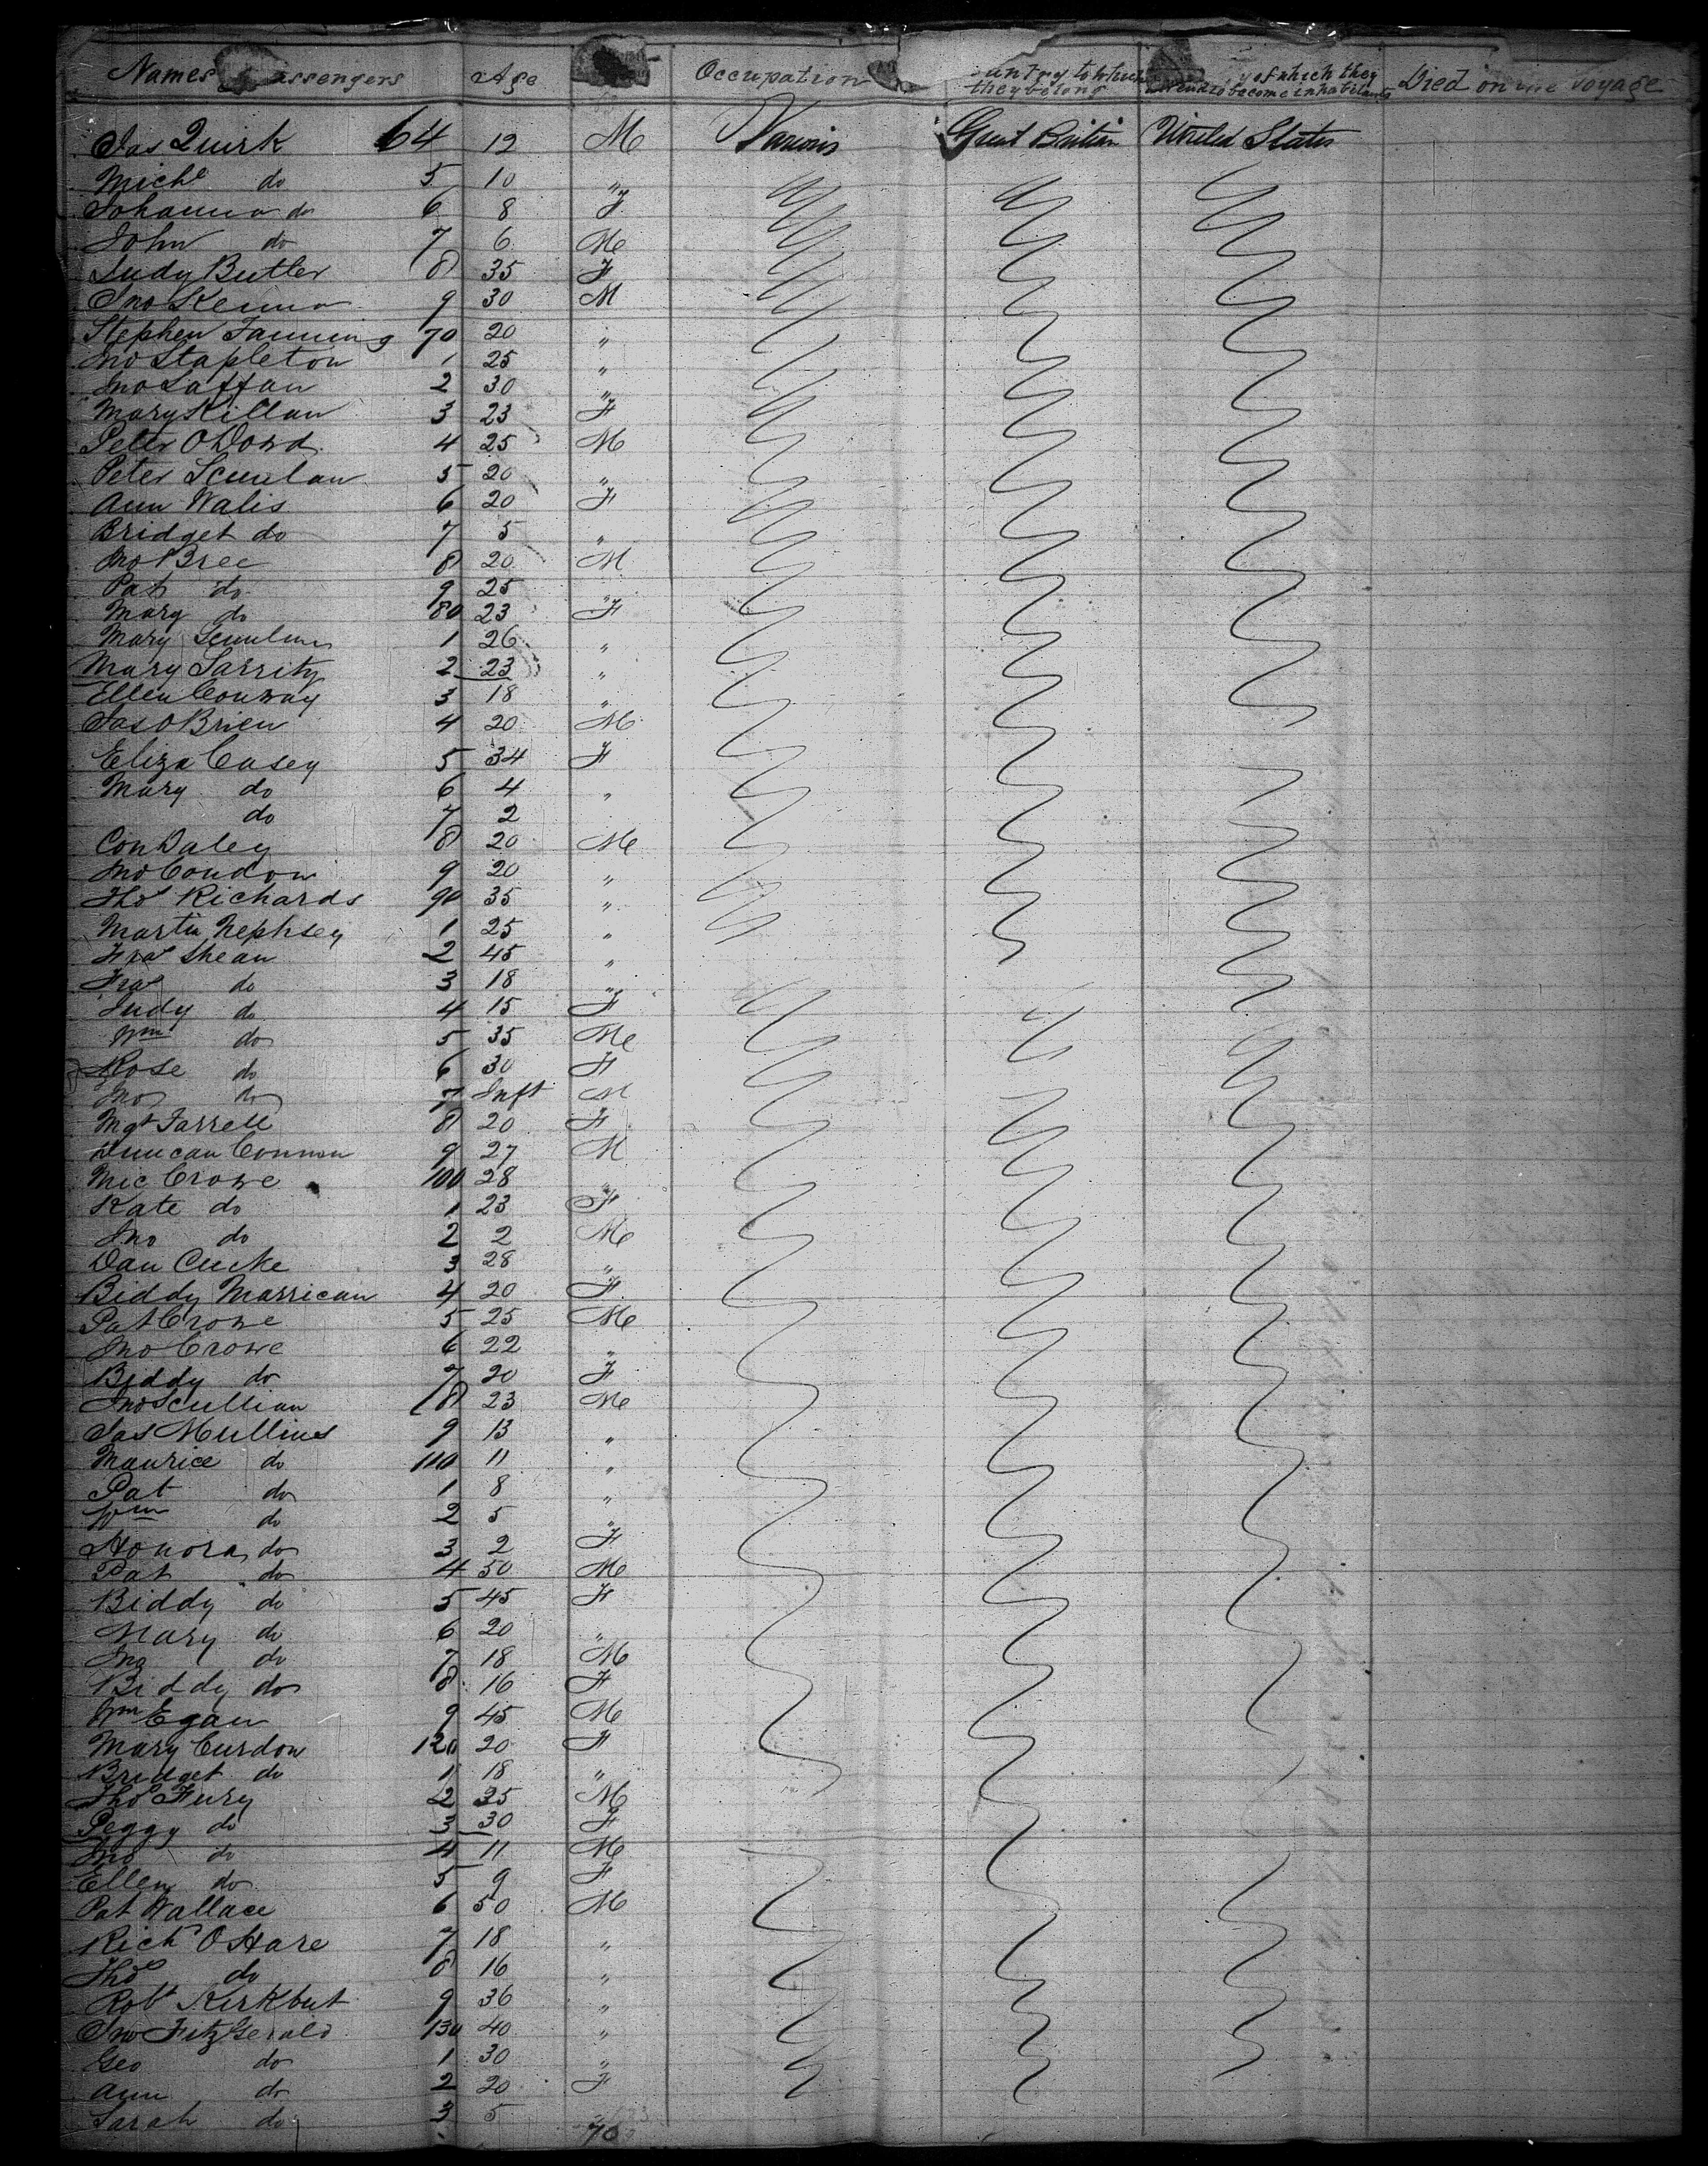 Names Passengers Age Occupation Country to which they belong of which they intend to become inhabitants Died on the Voyage
Jas Quirk 64 12 M Various Great Britian United States
Michl do 5 10 "
Johanna do 6 8 F
John do 7 6 M
Judy Butler 8 35 F
Jno Kenna 9 30 M
Stephen Fanning 70 20 "
Jno Stapleton 1 25 "
Jno Laffan 2 30 "
Mary Killan 3 23 F
Peter O Dowd 4 25 M
Peter Scanlan 5 20 "
Ann Walis 6 20 F
Bridget do 7 5 "
Jno Bree 8 20 M
Pat do 9 25 "
Mary do 80 23 F
Mary Scanlan 1 26 "
Mary Garrity 2 23 "
Ellen Conway 3 18 "
Jas O Brien 4 20 M
Eliza Casey 5 34 F
Mary do 6 4 "
do 7 2
Con Daley 8 20 M
Jno Condon 9 20 "
Thos Richards 90 35 "
Martin Nephsey 1 25 "
Fras Shean 2 45 "
Fras do 3 18 "
Judy do 4 15 F
Wm do 5 35 M
Rose do 6 30 F
Jno do 7 Inft M
Mgt Farrell 8 20 F
Duncan Connon 9 27 M
Mic Crowe 100 28 "
Kate do 1 23 F
Jno do 2 2 M
Dan 3 28 "
Biddy Marrican 4 20 F
Pat Crowe 5 25 M
Jno Crowe 6 22 "
Biddy do 7 20 F
Jno Scullian 8 23 M
Jas Mullins 9 13 "
Maurice do 110 11 "
Pat do 1 8 "
Wm do 2 5 "
Honora do 3 2 F
Pat do 4 50 M
Biddy do 5 45 F
Mary do 6 20 "
Jno do 7 18 M
Biddy do 8 16 F
Wm Egan 9 45 M
Mary Curdon 120 20 F
Bridget do 1 18 "
Thos Fury 2 35 M
Peggy do 3 30 F
Jno do 4 11 M
Ellen do 5 9 F
Pat Wallace 6 50 M
Richd O Hare 7 18 "
Thos do 8 16 "
Robt Kirkbut 9 36 "
Jno FitzGerald 130 40 "
Geo do 1 30 "
Ann do 2 20 F
Sarah do 3 5
70